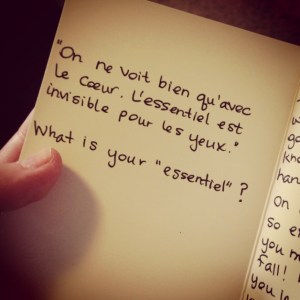 "On ne voit bien qu'avec
le cœur. L'essentiel est
invisible pour les yeux."
What is your "essentiel" ?
On
so
you
fall!
you